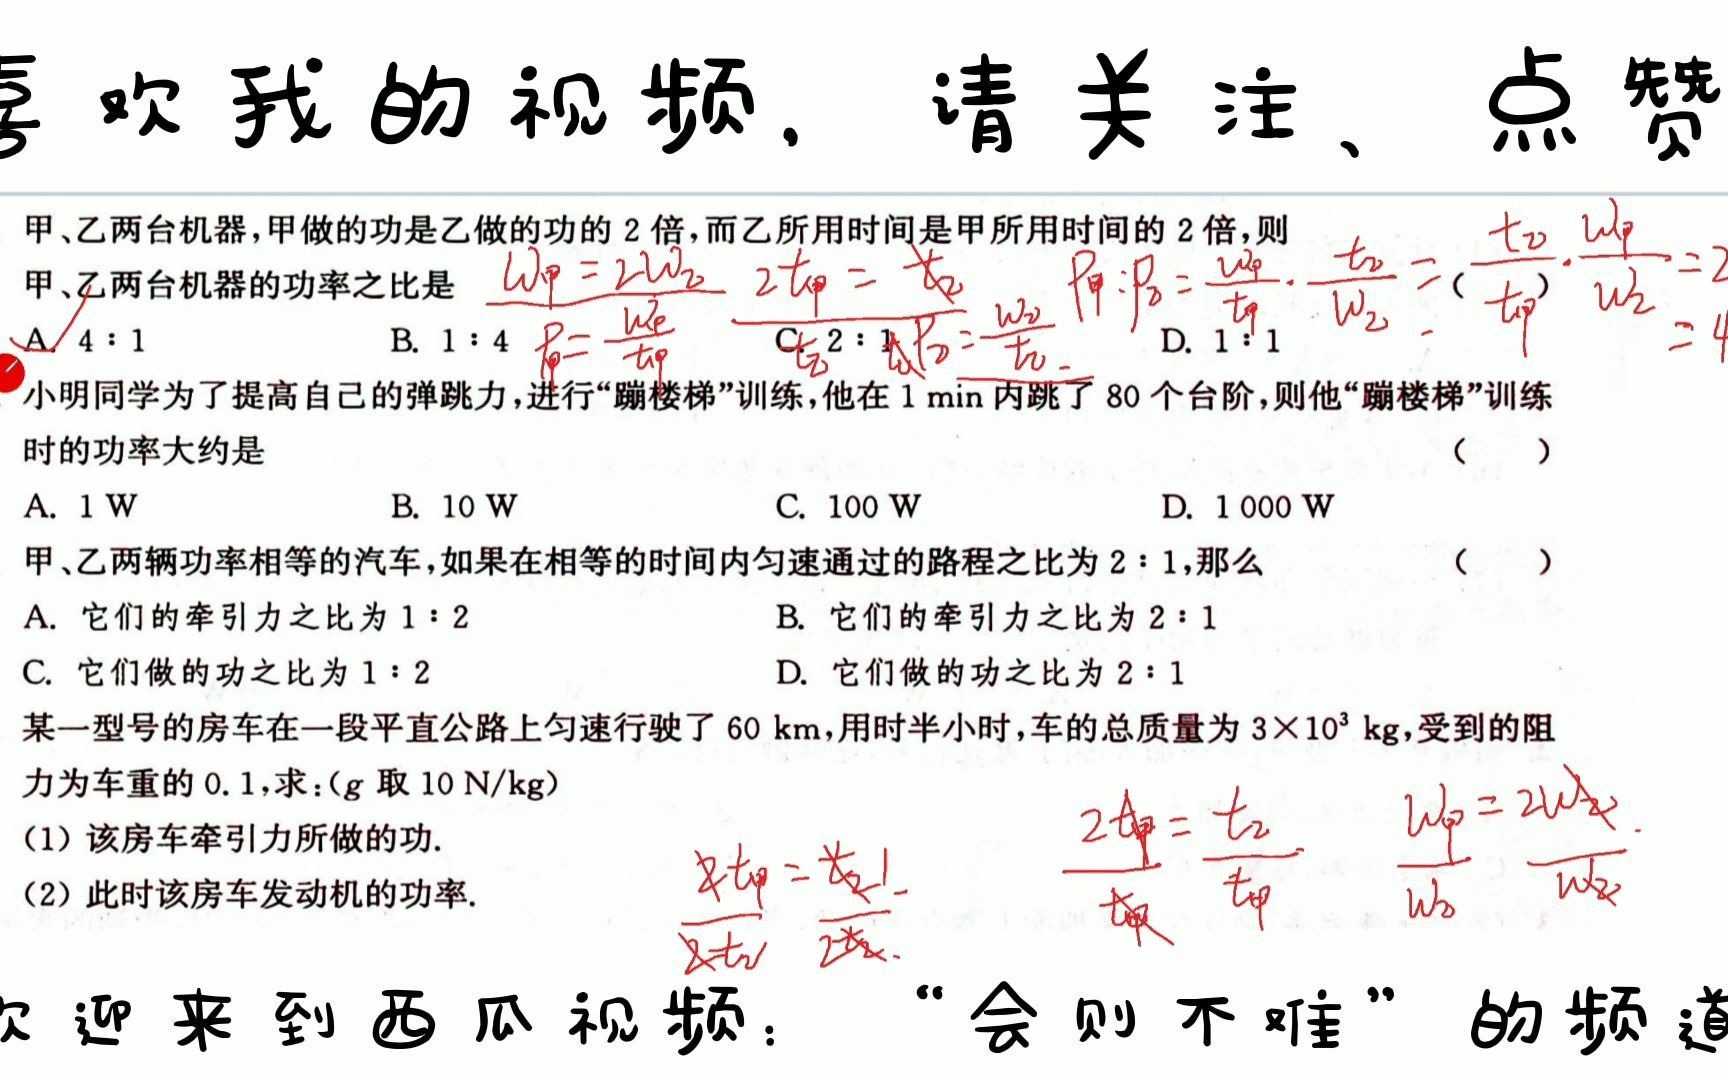 喜欢我的视频，请关注、点赞
甲、乙两台机器,甲做的功是乙做的功的 2 倍,而乙所用时间是甲所用时间的 2 倍,则
甲、乙两台机器的功率之比是 ( )
W甲 = 2W乙 2t甲 = t乙 P甲:P乙 = W甲/t甲 · t乙/W乙 = t乙/t甲 · W甲/W乙 = 2
P甲 = W甲/t甲 P乙 = W乙/t乙 = 4
A. 4∶1 B. 1∶4 C. 2∶1 D. 1∶1
小明同学为了提高自己的弹跳力,进行“蹦楼梯”训练,他在 1 min 内跳了 80 个台阶,则他“蹦楼梯”训练
时的功率大约是 ( )
A. 1 W B. 10 W C. 100 W D. 1 000 W
甲、乙两辆功率相等的汽车,如果在相等的时间内匀速通过的路程之比为 2∶1,那么 ( )
A. 它们的牵引力之比为 1∶2 B. 它们的牵引力之比为 2∶1
C. 它们做的功之比为 1∶2 D. 它们做的功之比为 2∶1
某一型号的房车在一段平直公路上匀速行驶了 60 km,用时半小时,车的总质量为 3×10³ kg,受到的阻
力为车重的 0.1,求:(g 取 10 N/kg)
(1) 该房车牵引力所做的功.
(2) 此时该房车发动机的功率.
2t甲/2t乙 = t乙 1/2t乙 2t甲/t甲 = t乙/t甲 W甲/W乙 = 2W乙/W乙
欢迎来到西瓜视频：“会则不难”的频道